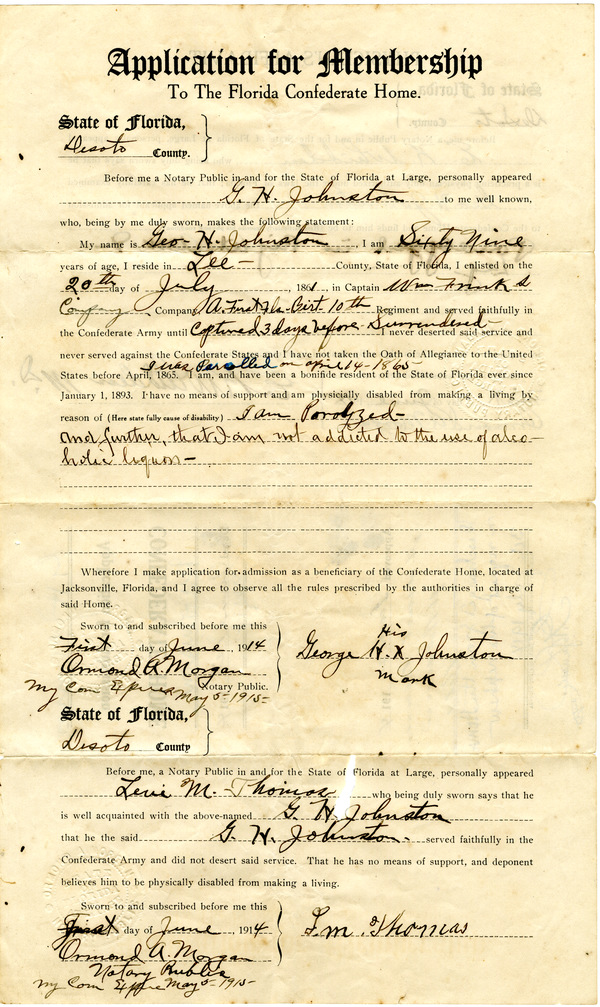 Application for Membership
To The Florida Confederate Home.
State of Florida,
Desoto County.
Before me a Notary Public in and for the State of Florida at Large, personally appeared
G. H. Johnston to me well known,
who, being by me duly sworn, makes the following statement:
My name is Geo- H. Johnston I am Sixty Nine
years of age, I reside in Lee- County, State of Florida, I enlisted on the
20th day of July, 1861, in Captain Wm Frink's
Company Company A. First Fla. 10th Regiment and served faithfully in
the Confederate Army until Captured 3 days before Surrendered- I never deserted said service and
never served against the Confederate States and I have not taken the Oath of Allegiance to the United
I was Parolled on April 14-1865
States before April, 1865. I am, and have been a bonifide resident of the State of Florida ever since
January 1, 1893. I have no means of support and am physically disabled from making a living by
reason of (Here state fully cause of disability) I am Paralyzed-
and further, that I am not addicted to the use of alco-
holic liquor-
Wherefore I make application for admission as a beneficiary of the Confederate Home, located at
Jacksonville, Florida, and I agree to observe all the rules prescribed by the authorities in charge of
said Home.
Sworn to and subscribed before me this
First day of June, 1914
His
George H. X Johnston
Mark
Ormond A. Morgan
Notary Public.
My Com Expires May 5-1915-
State of Florida,
Desoto County
Before me, a Notary Public in and for the State of Florida at Large, personally appeared
M. Thomas who being duly sworn says that he
is well acquainted with the above-named G. H. Johnston
that he the said G. H. Johnston served faithfully in the
Confederate Army and did not desert said service. That he has no means of support, and deponent
believes him to be physically disabled from making a living.
Sworn to and subscribed before me this
First day of June, 1914
L. M. Thomas
Ormond A. Morgan
Notary Public
My Com Expire May 5-1915-